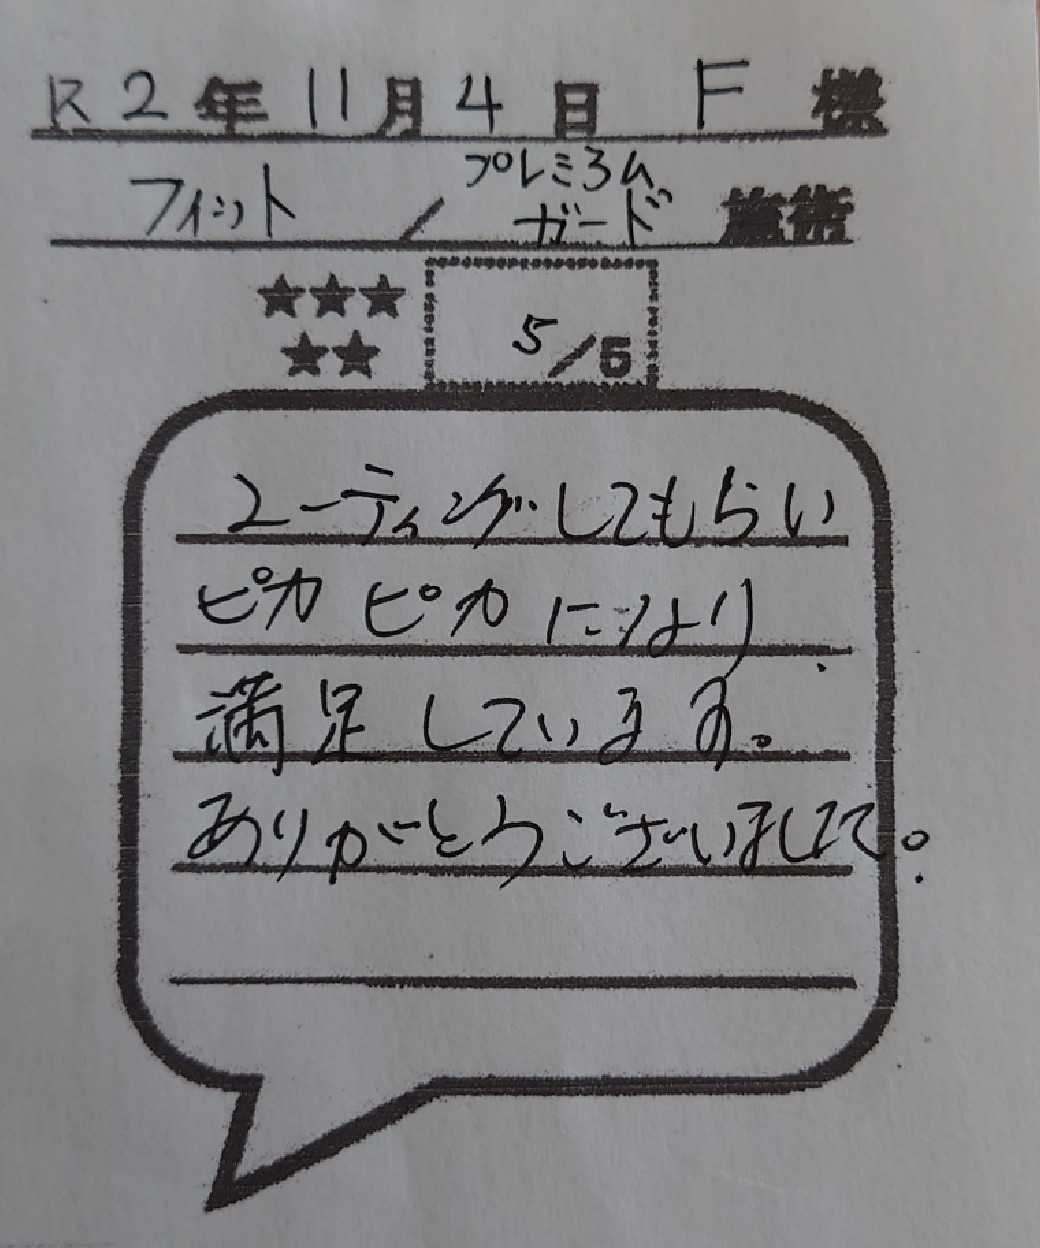 R2年11月4日 F 様
フィット / プレミアム
ガード 施術
★★★
★★
5/5
コーティングしてもらい
ピカピカになり
満足しています。
ありがとうございました。